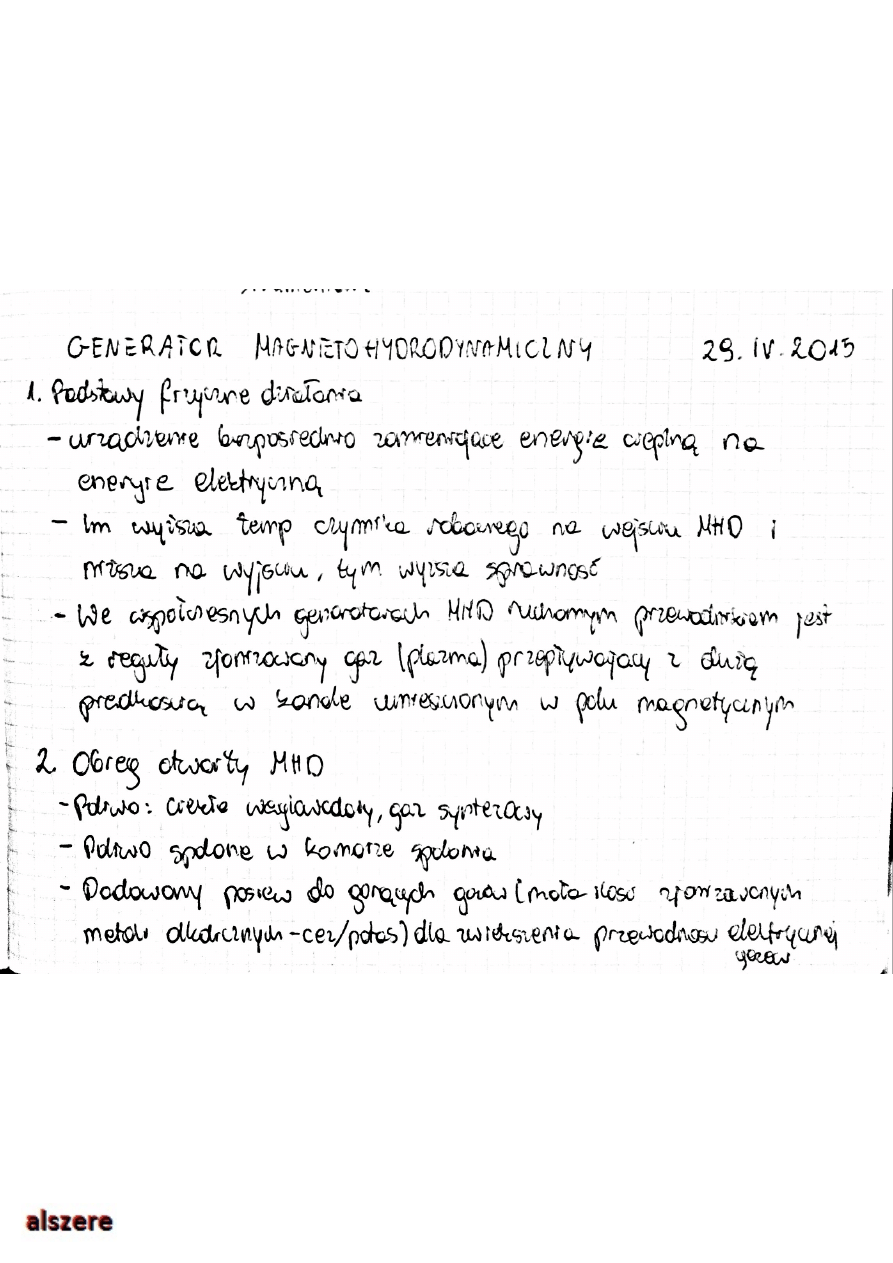 GENERATOR MAGNETOHYDRODYNAMICZNY 29. IV. 2015
1. Podstawy fizyczne działania
- urządzenie bezpośrednio zamieniające energię cieplną na
energię elektryczną
- Im wyższa temp czynnika roboczego na wejściu MHD i
niższa na wyjściu, tym wyższa sprawność
- We współczesnych generatorach MHD ruchomym przewodnikiem jest
z reguły zjonizowany gaz (plazma) przepływający z dużą
prędkością w kanale umieszczonym w polu magnetycznym
2. Obieg otwarty MHD
- Paliwo: ciekłe węglowodory, gaz syntezowy
- Paliwo spalone w komorze spalania
- Dodawany posiew do gorących gazów (mała ilość zjonizowanych
metali alkalicznych - cez/potas) dla zwiększenia przewodności elektrycznej
gazów
alszere